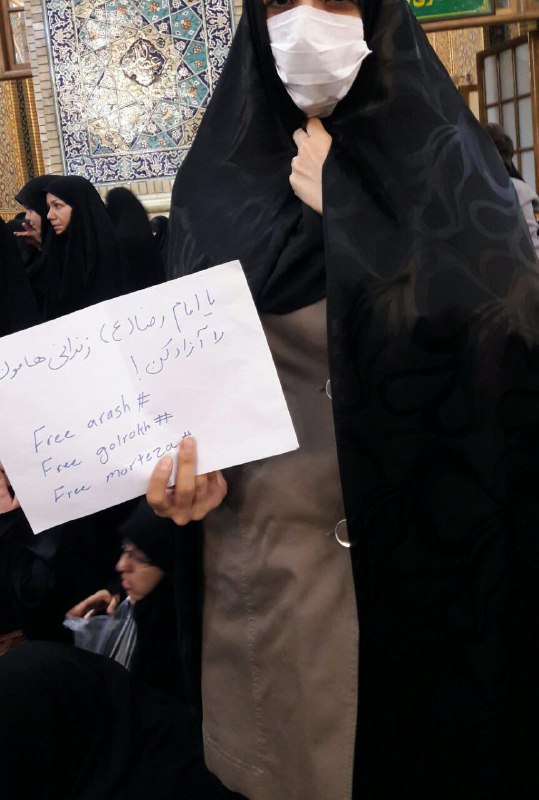 یا امام رضا (ع) زندانی هامون
را آزاد کن!
Free arash #
Free golrokh #
Free morteza #